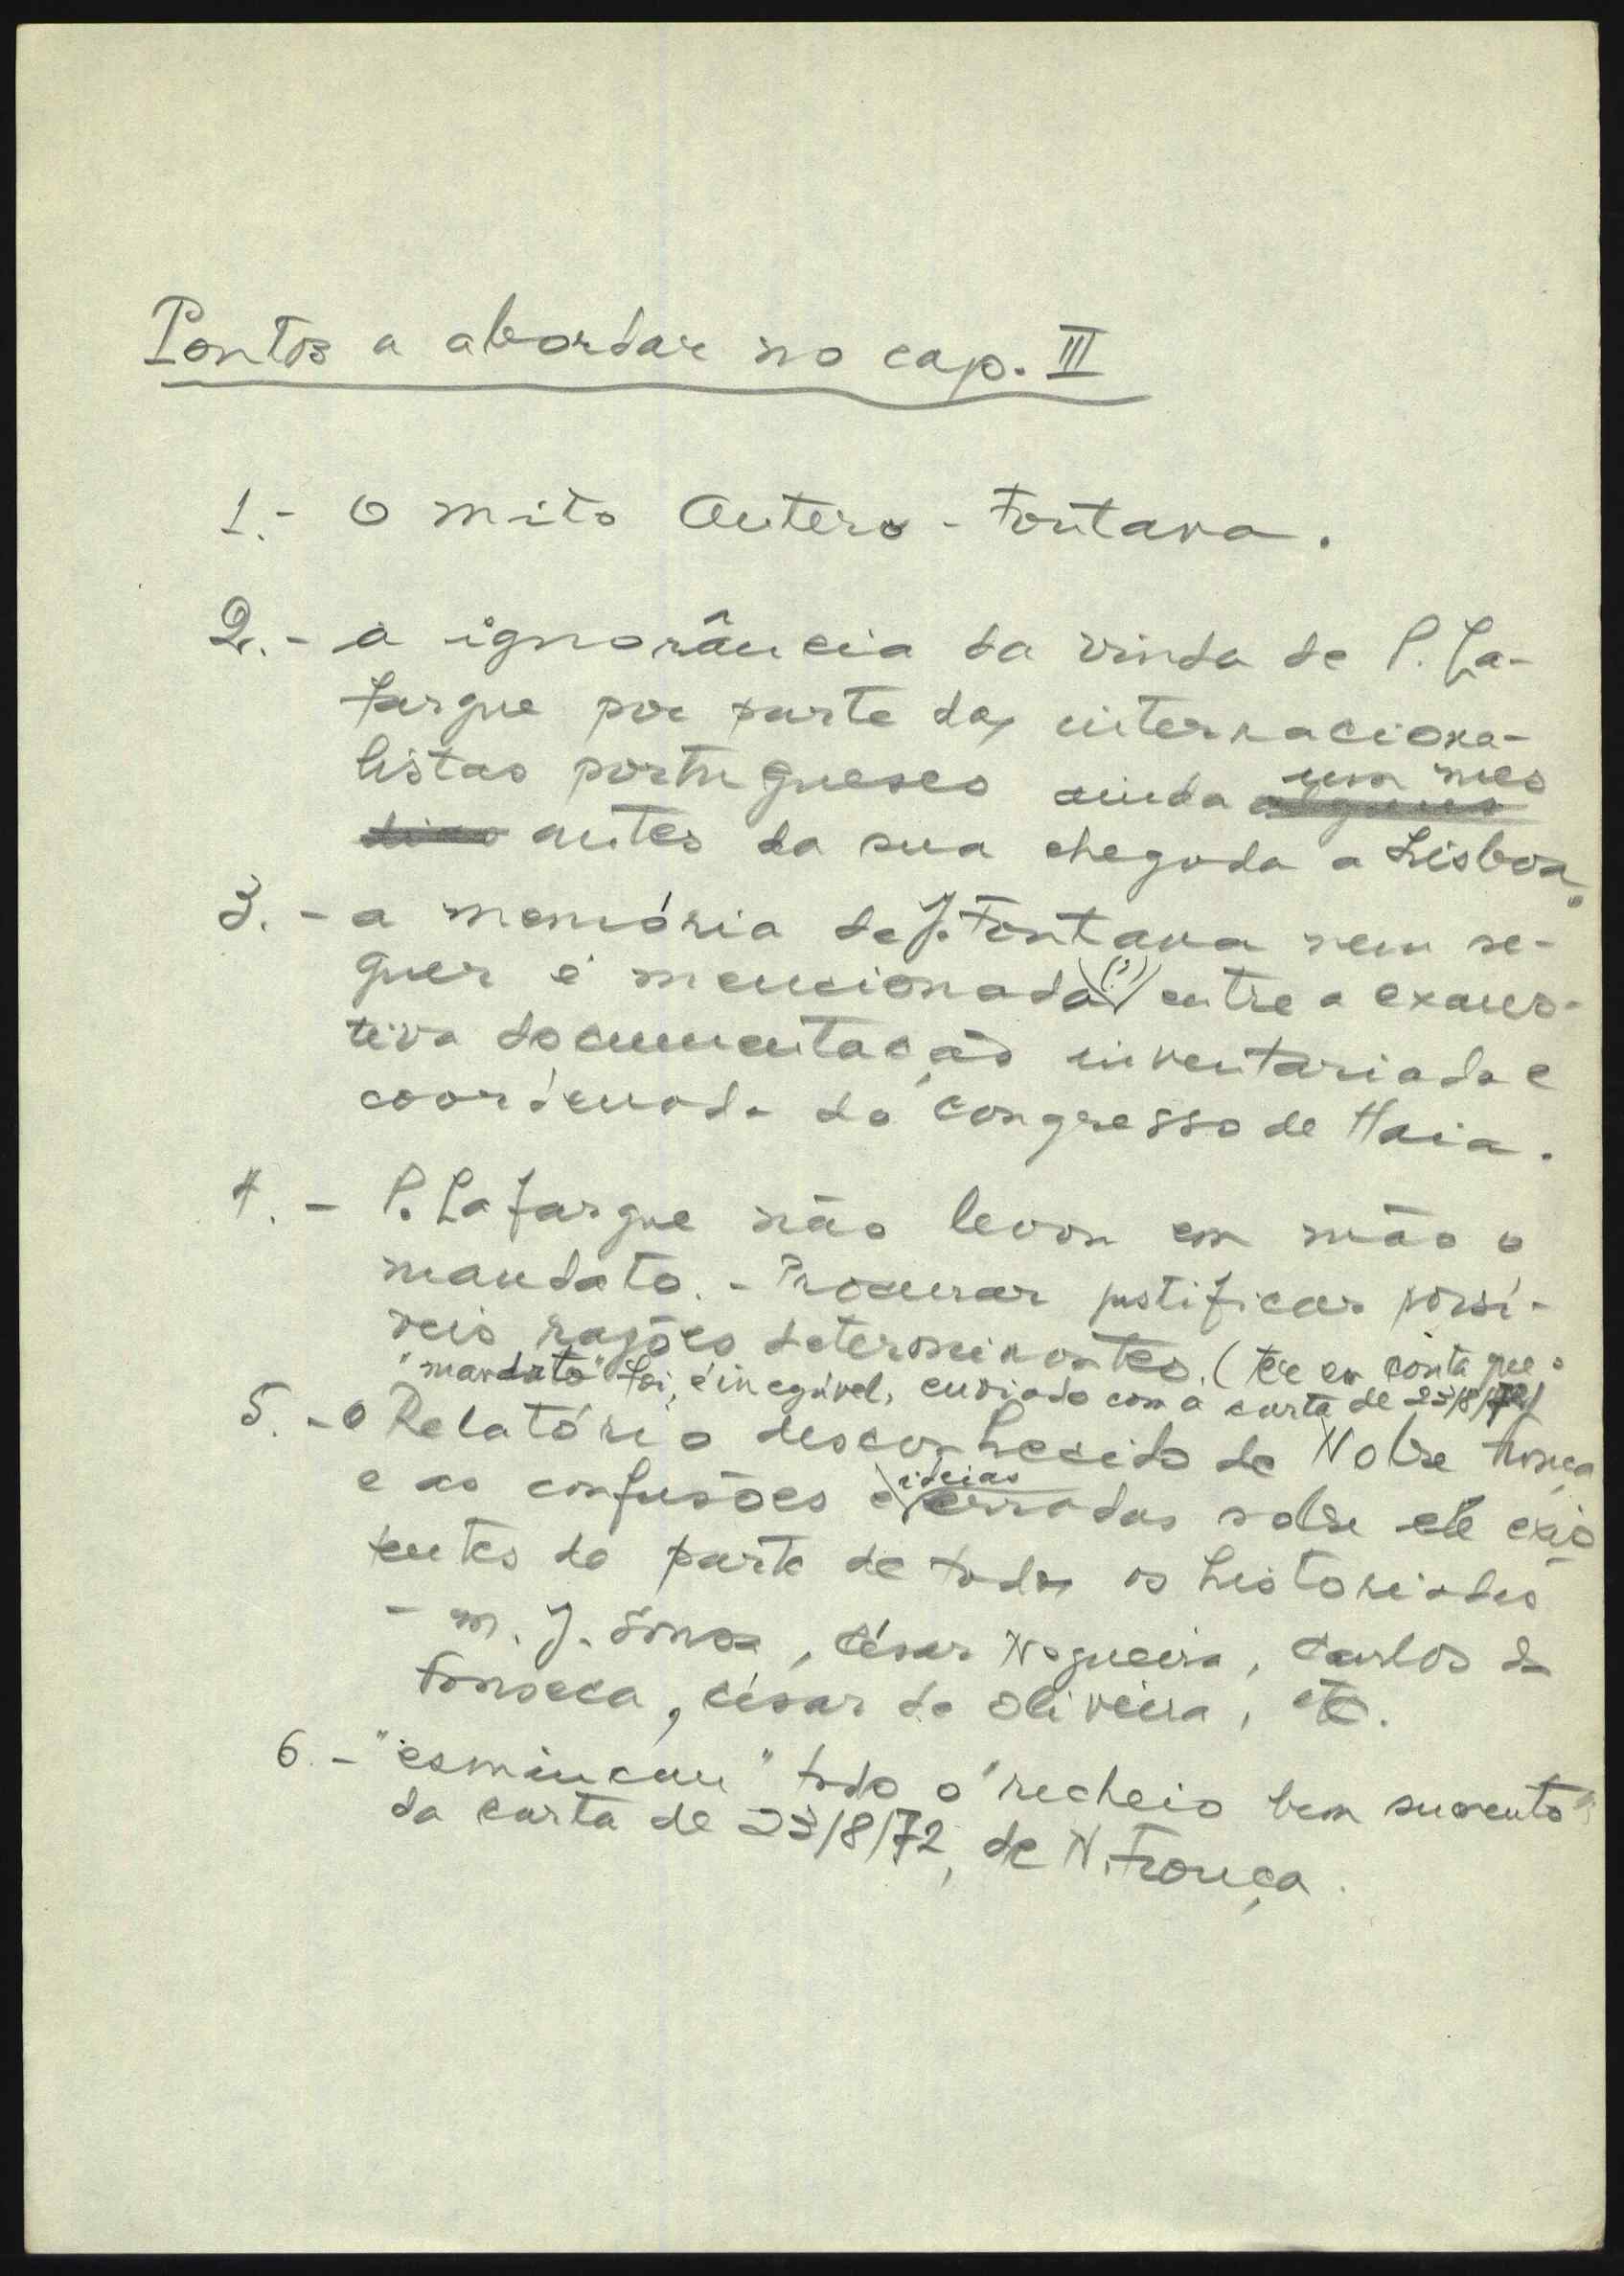 Pontos a abordar no cap. III
1.- O mito Antero - Fontana.
2.- a ignorância da vinda de P. La-
fargue por parte dos internaciona-
listas portugueses ainda alguns um mes
dias antes da sua chegada a Lisboa.
3.- a memória de J. Fontana nem se-
quer é mencionada (?) entre a exaus-
tiva documentação inventariada e
coordenada do Congresso de Haia.
4.- P. Lafargue não levou em mão o
mandato. - Procurar justificar possí-
veis razões determinantes. (ter em conta que o
"mandato" foi, é inegável, enviado com a carta de 23/8/72)
5.- O Relatório desconhecido de Nobre França
e as confusões e ideias erradas sobre ele exis-
tentes da parte de todos os historiados
- M. J. Sousa, César Nogueira, Carlos da
Fonseca, César de Oliveira, etc.
6.- "esmiuçar" todo o "recheio bem suculento"
da carta de 23/8/72, de N. França.